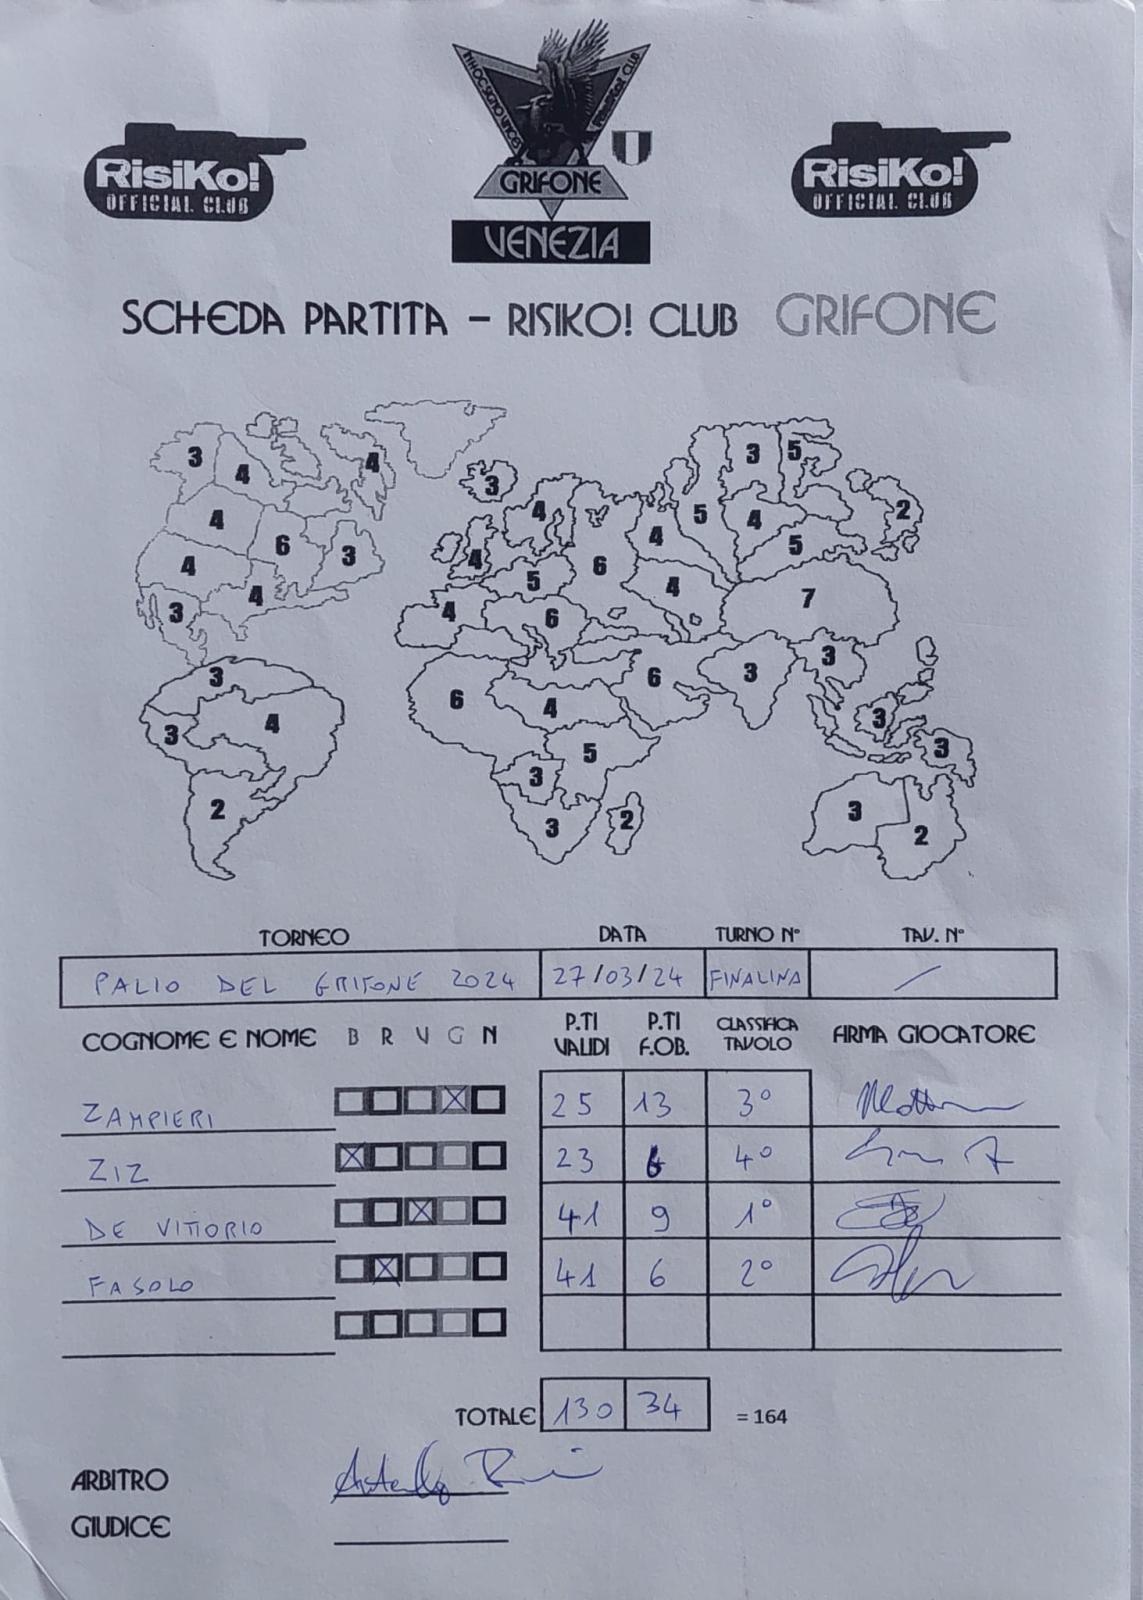 IN HOC SIGNO VINCES
RISIKO! CLUB
GRIFONE
VENEZIA
RisiKo!
OFFICIAL CLUB
RisiKo!
OFFICIAL CLUB
SCHEDA PARTITA – RISIKO! CLUB GRIFONE
3 4 4 3 3 5
4 4 5 4 2
4 6 3 4 6 4 5
4 5 4 7
3 4 4 6
3 6 4 6 3 3
3 4 5 3 3
2 3 3 2 3 2
TORNEO DATA TURNO N° TAV. N°
PALIO DEL GRIFONE 2024 27/03/24 FINALINA /
COGNOME E NOME B R V G N P.TI VALIDI P.TI F.OB. CLASSIFICA TAVOLO FIRMA GIOCATORE
ZAMPIERI 25 13 3°
ZIZ 23 6 4°
DE VITTORIO 41 9 1°
FASOLO 41 6 2°
TOTALE 130 34 = 164
ARBITRO
GIUDICE